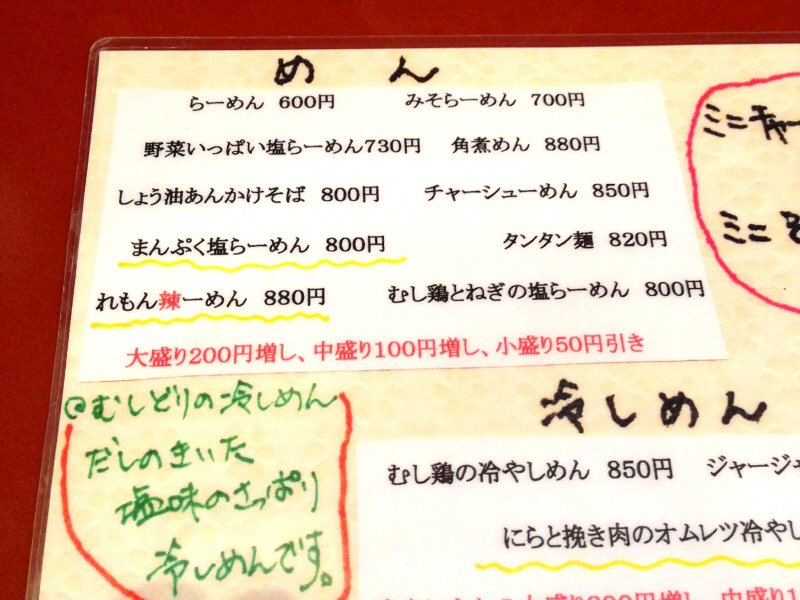 めん
らーめん 600円 みそらーめん 700円
野菜いっぱい塩らーめん730円 角煮めん 880円
しょう油あんかけそば 800円 チャーシューめん 850円
まんぷく塩らーめん 800円 タンタン麺 820円
れもん辣ーめん 880円 むし鶏とねぎの塩らーめん 800円
大盛り200円増し、中盛り100円増し、小盛り50円引き
ミニチャー
ミニ
@むしどりの冷しめん
だしのきいた
塩味のさっぱり
冷しめんです。
冷しめん
むし鶏の冷やしめん 850円 ジャージャ
にらと挽き肉のオムレツ冷やし